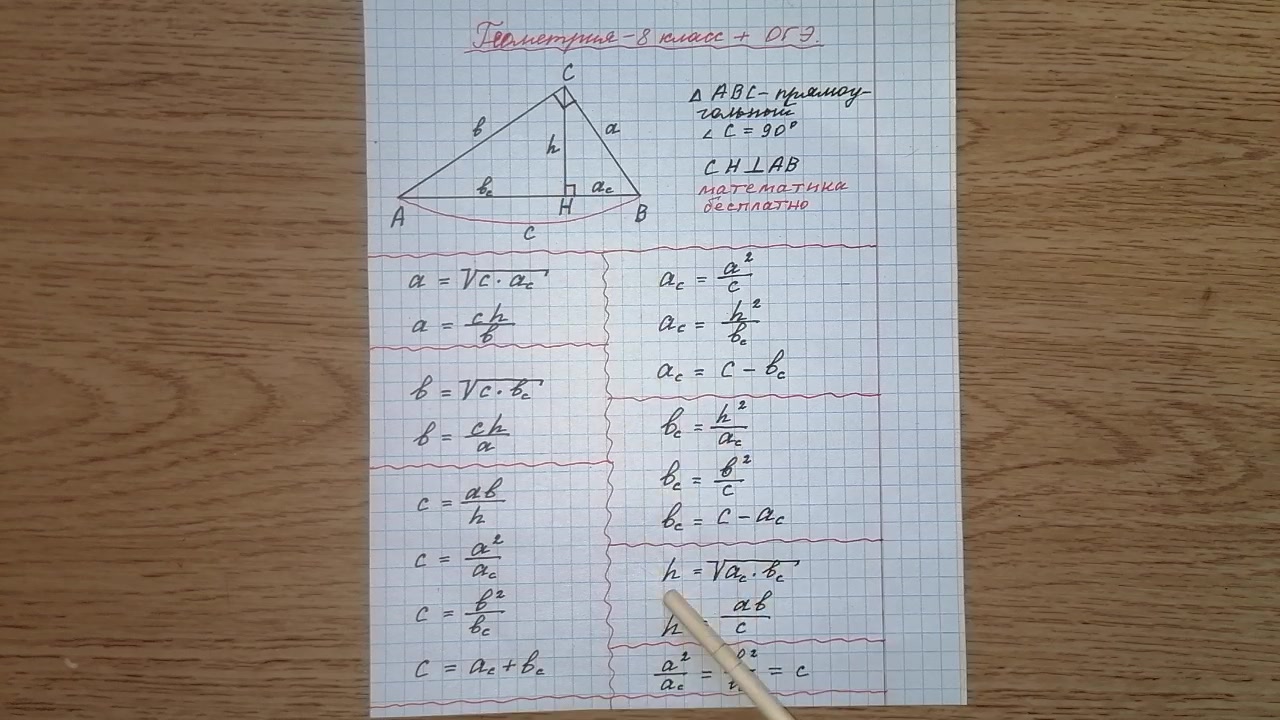 Геометрия - 8 класс + ОГЭ.
C
в
a
h
вc
ac
A
H
B
c
△ ABC - прямоу-
гольный
∠ C = 90°
CH ⊥ AB
математика
бесплатно
a = √c · ac
a = ch/в
в = √c · вc
в = ch/a
c = aв/h
c = a²/ac
c = в²/вc
c = ac + вc
ac = a²/c
ac = h²/вc
ac = c - вc
вc = h²/ac
вc = в²/c
вc = c - ac
h = √ac · вc
h = aв/c
a²/ac = = c